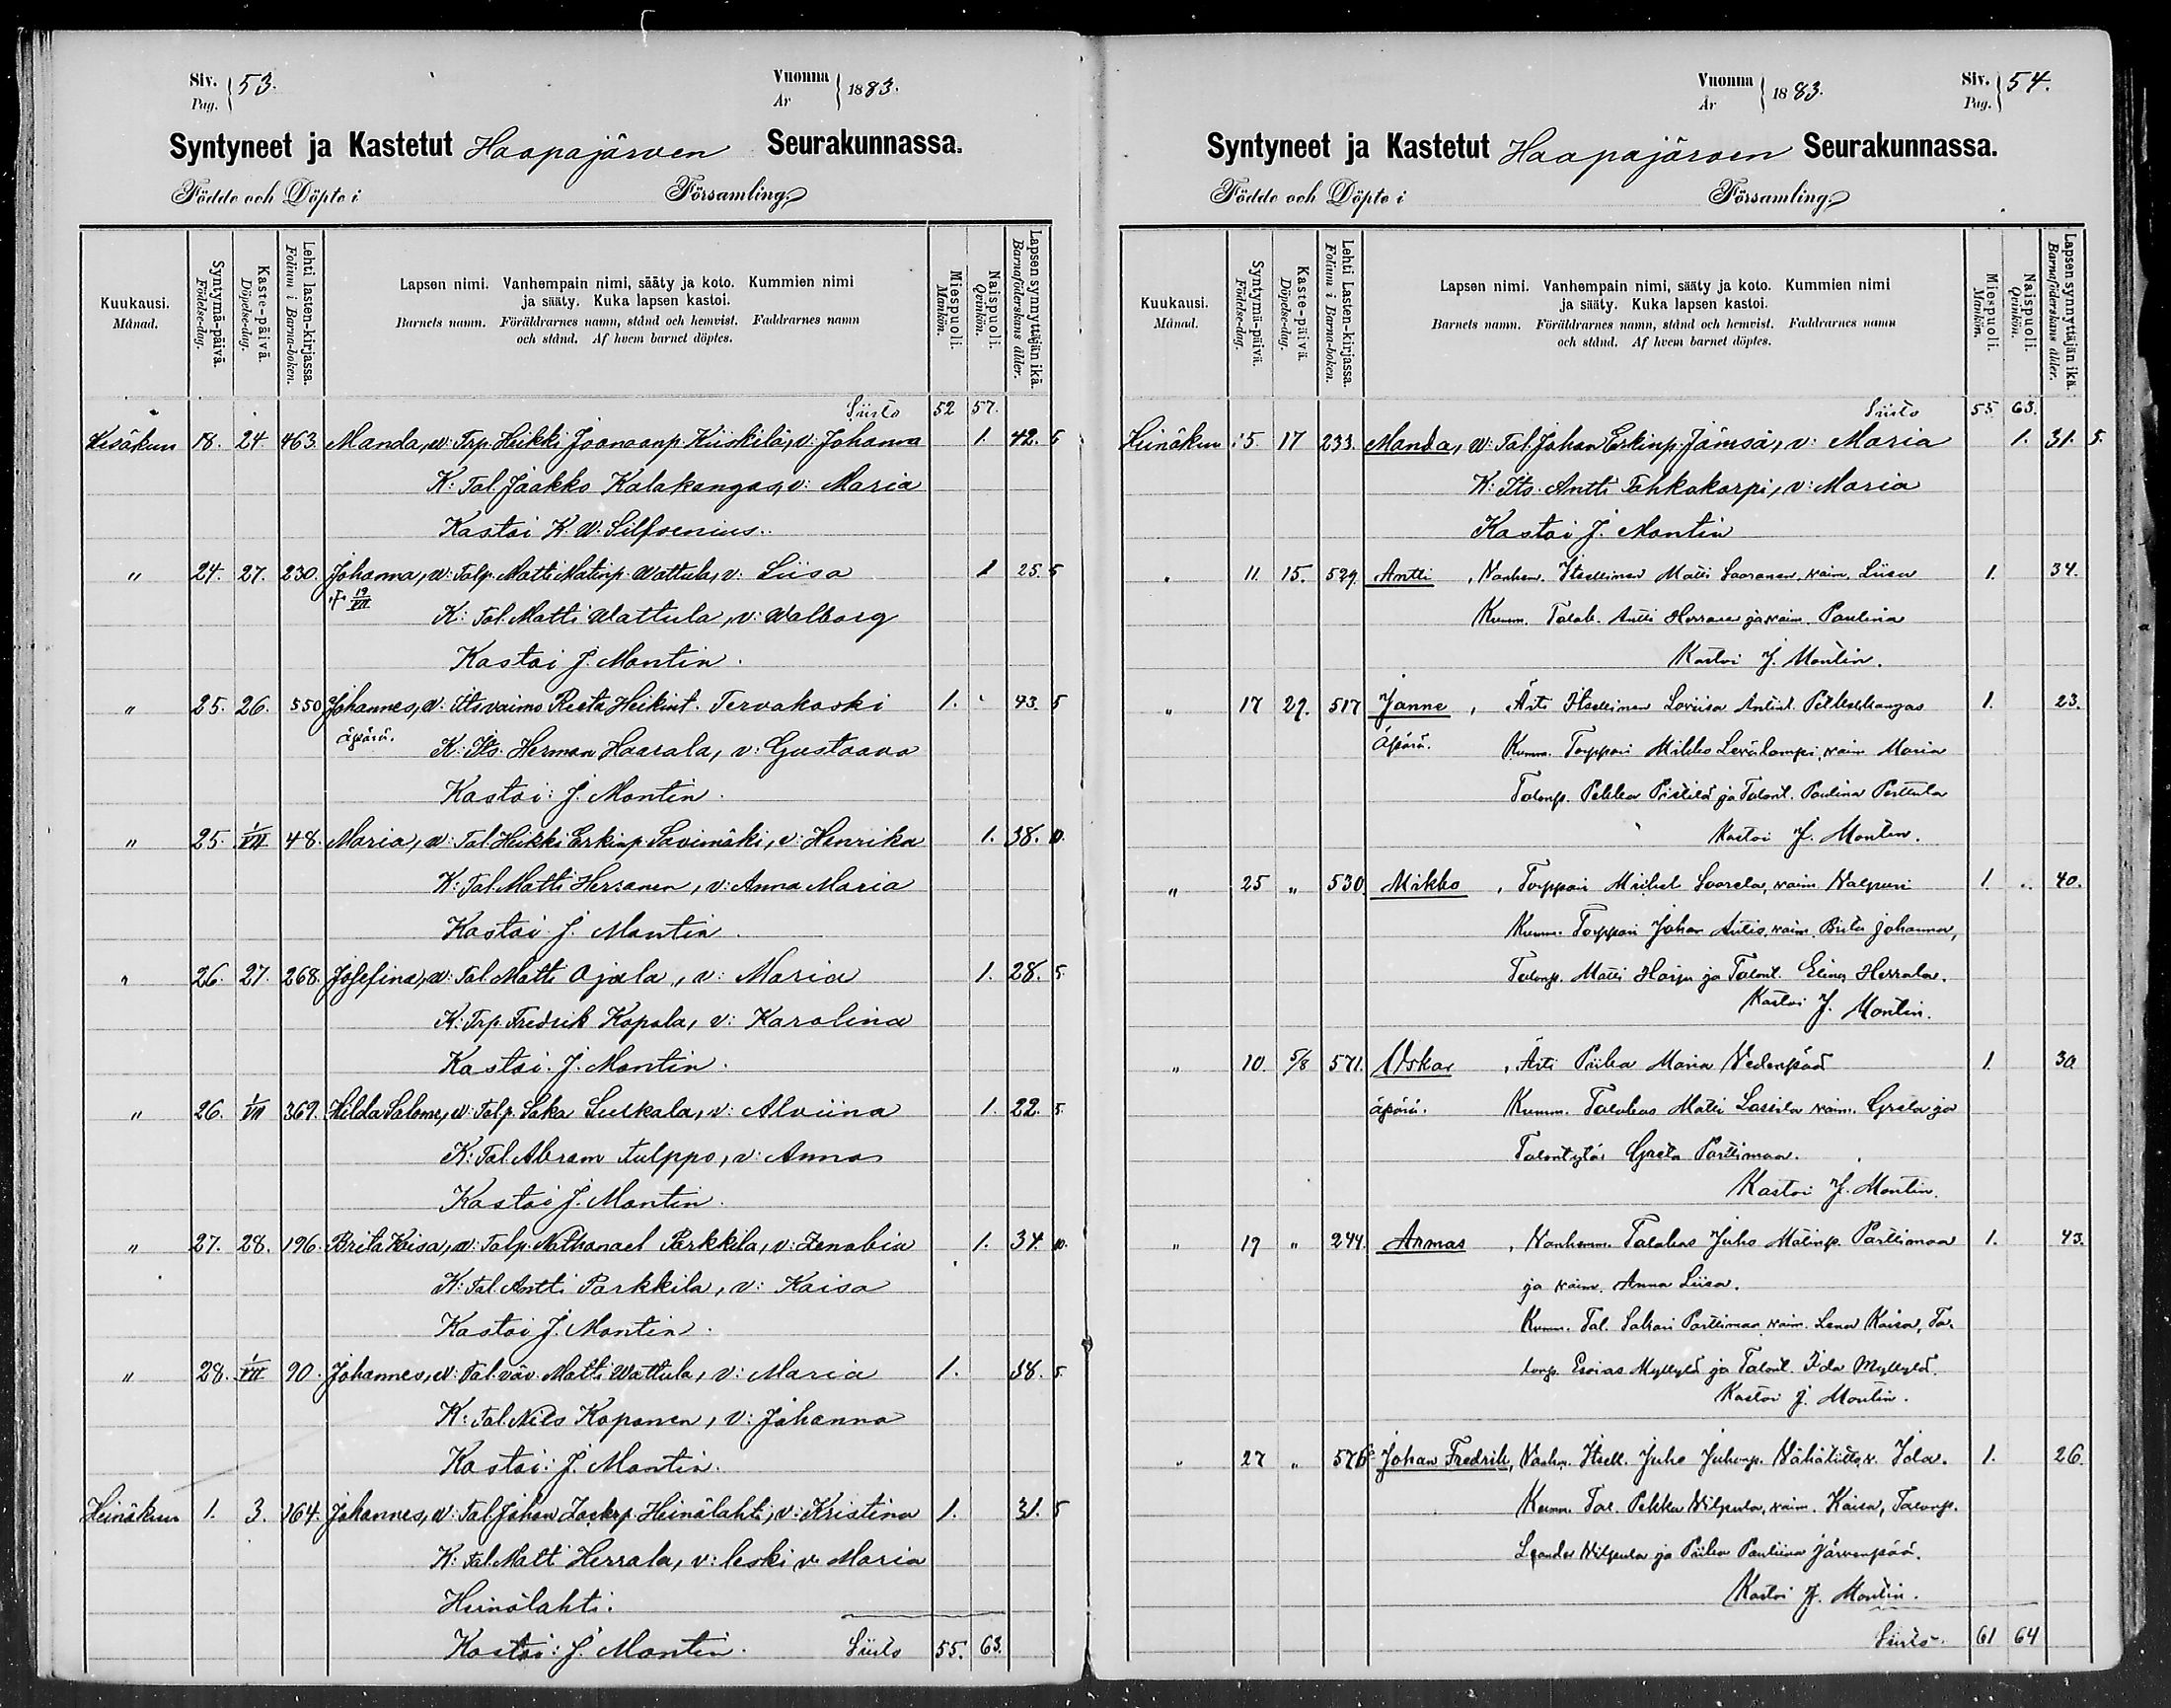 Siv. 53.
Pag.
Vuonna 1883.
År
Syntyneet ja Kastetut Haapajärven Seurakunnassa.
Födde och Döpte i Församling.
Kuukausi.
Månad.
Syntymä-päivä.
Födelse-dag.
Kaste-päivä.
Döpelse-dag.
Lehti lasten-kirjassa.
Folium i Barna-boken.
Lapsen nimi. Vanhempain nimi, sääty ja koto. Kummien nimi
ja sääty. Kuka lapsen kastoi.
Barnets namn. Föräldrarnes namn, stånd och hemvist. Faddrarnes namn
och stånd. Af hvem barnet döptes.
Miespuoli.
Mankön.
Naispuoli.
Qvinkön.
Lapsen synnyttäjän ikä.
Barnaföderskans ålder.
Siirto 52 57.
Kesäkuu 18. 24. 463. Manda, w: Trp. Heikki Joonaanp. Kiiskilä, v: Johanna 1. 42. 5
K: Tal. Jaakko Kalakangas, v: Maria
Kastoi K. W. Silfvenius.
" 24. 27. 230. Johanna, w: Talp. Matti Matinp. Wattula, v: Liisa 1 25. 5
† 19/VII
K: Tal. Matti Wattula, v: Walborg
Kastoi J. Montin.
" 25. 26. 550 Johannes, w: Itsvaimo Reeta Heikint. Tervakoski 1. 43. 5
äpärä.
K: Its. Herman Haarala, v: Gustaava
Kastoi: J. Montin.
" 25. 1/VII 48. Maria, w: Tal. Heikki Erkinp. Savimäki, v: Henrika 1. 38. 10.
K: Tal. Matti Herranen, v: Anna Maria
Kastoi J. Montin.
" 26. 27. 268. Josefina, w: Tal. Matti Ojala, v: Maria 1. 28. 5.
K: Trp. Fredrik Kopola, v: Karolina
Kastoi: J. Montin.
" 26. 1/VII 369. Hilda Salome, w: Talp. Saka Luskala, v: Alviina 1. 22. 5.
K: Tal. Abram Tulppo, v: Anna
Kastoi J. Montin.
" 27. 28. 196. Brita Kaisa, w: Talp. Nathanael Parkkila, v: Zenobia 1. 34. 10.
K: Tal. Antti Parkkila, v: Kaisa
Kastoi J. Montin.
" 28. 1/VII 90. Johannes, w: Tal. väv. Matti Wattula, v: Maria 1. 38. 5.
K: Tal. Nils Koponen, v: Johanna
Kastoi: J. Montin.
Heinäkuu 1. 3. 164. Johannes, w: Tal. Johan Zackrp. Heinälahti, v: Kristina 1. 31. 5
K: Tal. Matti Herrala, v: leski v. Maria
Heinälahti.
Kastoi: J. Montin. Siirto 55. 63.
Vuonna 1883.
År
Siv. 54.
Pag.
Syntyneet ja Kastetut Haapajärven Seurakunnassa.
Födde och Döpte i Församling.
Kuukausi.
Månad.
Syntymä-päivä.
Födelse-dag.
Kaste-päivä.
Döpelse-dag.
Lehti Lasten-kirjassa.
Folium i Barna-boken.
Lapsen nimi. Vanhempain nimi, sääty ja koto. Kummien nimi
ja sääty. Kuka lapsen kastoi.
Barnets namn. Föräldrarnes namn, stånd och hemvist. Faddrarnes namn
och stånd. Af hvem barnet döptes.
Miespuoli.
Mankön.
Naispuoli.
Qvinkön.
Lapsen synnyttäjän ikä.
Barnaföderskans ålder.
Siirto 55 63.
Heinäkuu 15. 17 233. Manda, w: Tal. Johan Erkinp. Jämsä, v: Maria 1. 31. 5.
K: Its. Antti Tahkakorpi, v: Maria
Kastoi J. Montin
" 11. 15. 529. Antti, Vanhem. Itsellinen Matti Saaranen, vaim. Liisa 1. 34.
Kumm. Talall. Antti Herranen ja vaim. Paulina
Kastoi J. Montin.
" 17 29. 517 Janne, Äiti Itsellinen Loviisa Antint. Pitkäkangas 1. 23.
äpärä. Kumm. Torppari Mikko Levälampi, vaim Maria
Talonp. Pekka Pistilä ja Talont. Paulina Perttula
Kastoi J. Montin.
" 25 " 530. Mikko, Torppari Mikael Saarela, vaim. Valpuri 1. 40.
Kumm. Torppari Johan Autio, vaim. Brita Johanna,
Talonp. Matti Harju ja Talont. Elina Herrala.
Kastoi J. Montin.
" 10. 5/8 571. Oskar, Äiti Piika Maria Vedenpää 1. 30
äpärä. Kumm. Talokas Matti Lassila vaim. Greta ja
Talontytär Greta Parttimaa.
Kastoi J. Montin.
" 19 " 244. Armas, Vanhemm. Talokas Juho Matinp. Parttimaa 1. 43.
ja vaim. Anna Liisa.
Kumm. Tal. Sakari Parttimaa vaim. Lena Kaisa, Ta-
lonp. Esaias Myllylä ja Talont. Iida Myllylä.
Kastoi J. Montin.
" 27 " 576 Johan Fredrik, Vanh. Itsell. Juho Juhonp. Vähätiitto, v. Iida. 1. 26.
Kumm. Tal. Pekka Vilpula, vaim. Kaisa, Talonp.
Leander Vilpula ja Piika Pauliina Järvenpää.
Kastoi J. Montin.
Siirto. 61 64